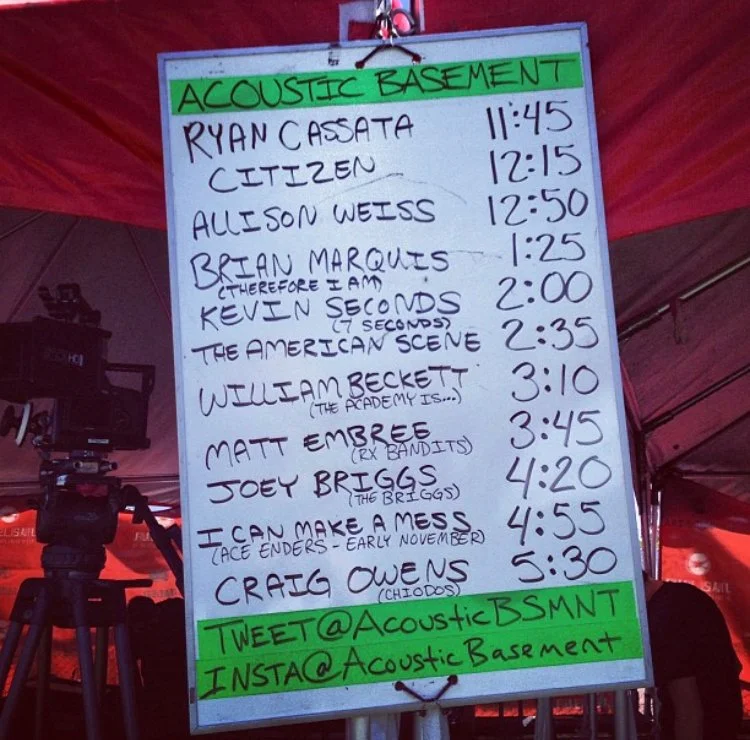 ACOUSTIC BASEMENT
RYAN CASSATA 11:45
CITIZEN 12:15
ALLISON WEISS 12:50
BRIAN MARQUIS 1:25
(THEREFORE I AM)
KEVIN SECONDS 2:00
(7 SECONDS)
THE AMERICAN SCENE 2:35
WILLIAM BECKETT 3:10
(THE ACADEMY IS...)
MATT EMBREE 3:45
(RX BANDITS)
JOEY BRIGGS 4:20
(THE BRIGGS)
I CAN MAKE A MESS 4:55
(ACE ENDERS - EARLY NOVEMBER)
CRAIG OWENS 5:30
(CHIODOS)
TWEET@AcousticBSMNT
INSTA@AcousticBasement